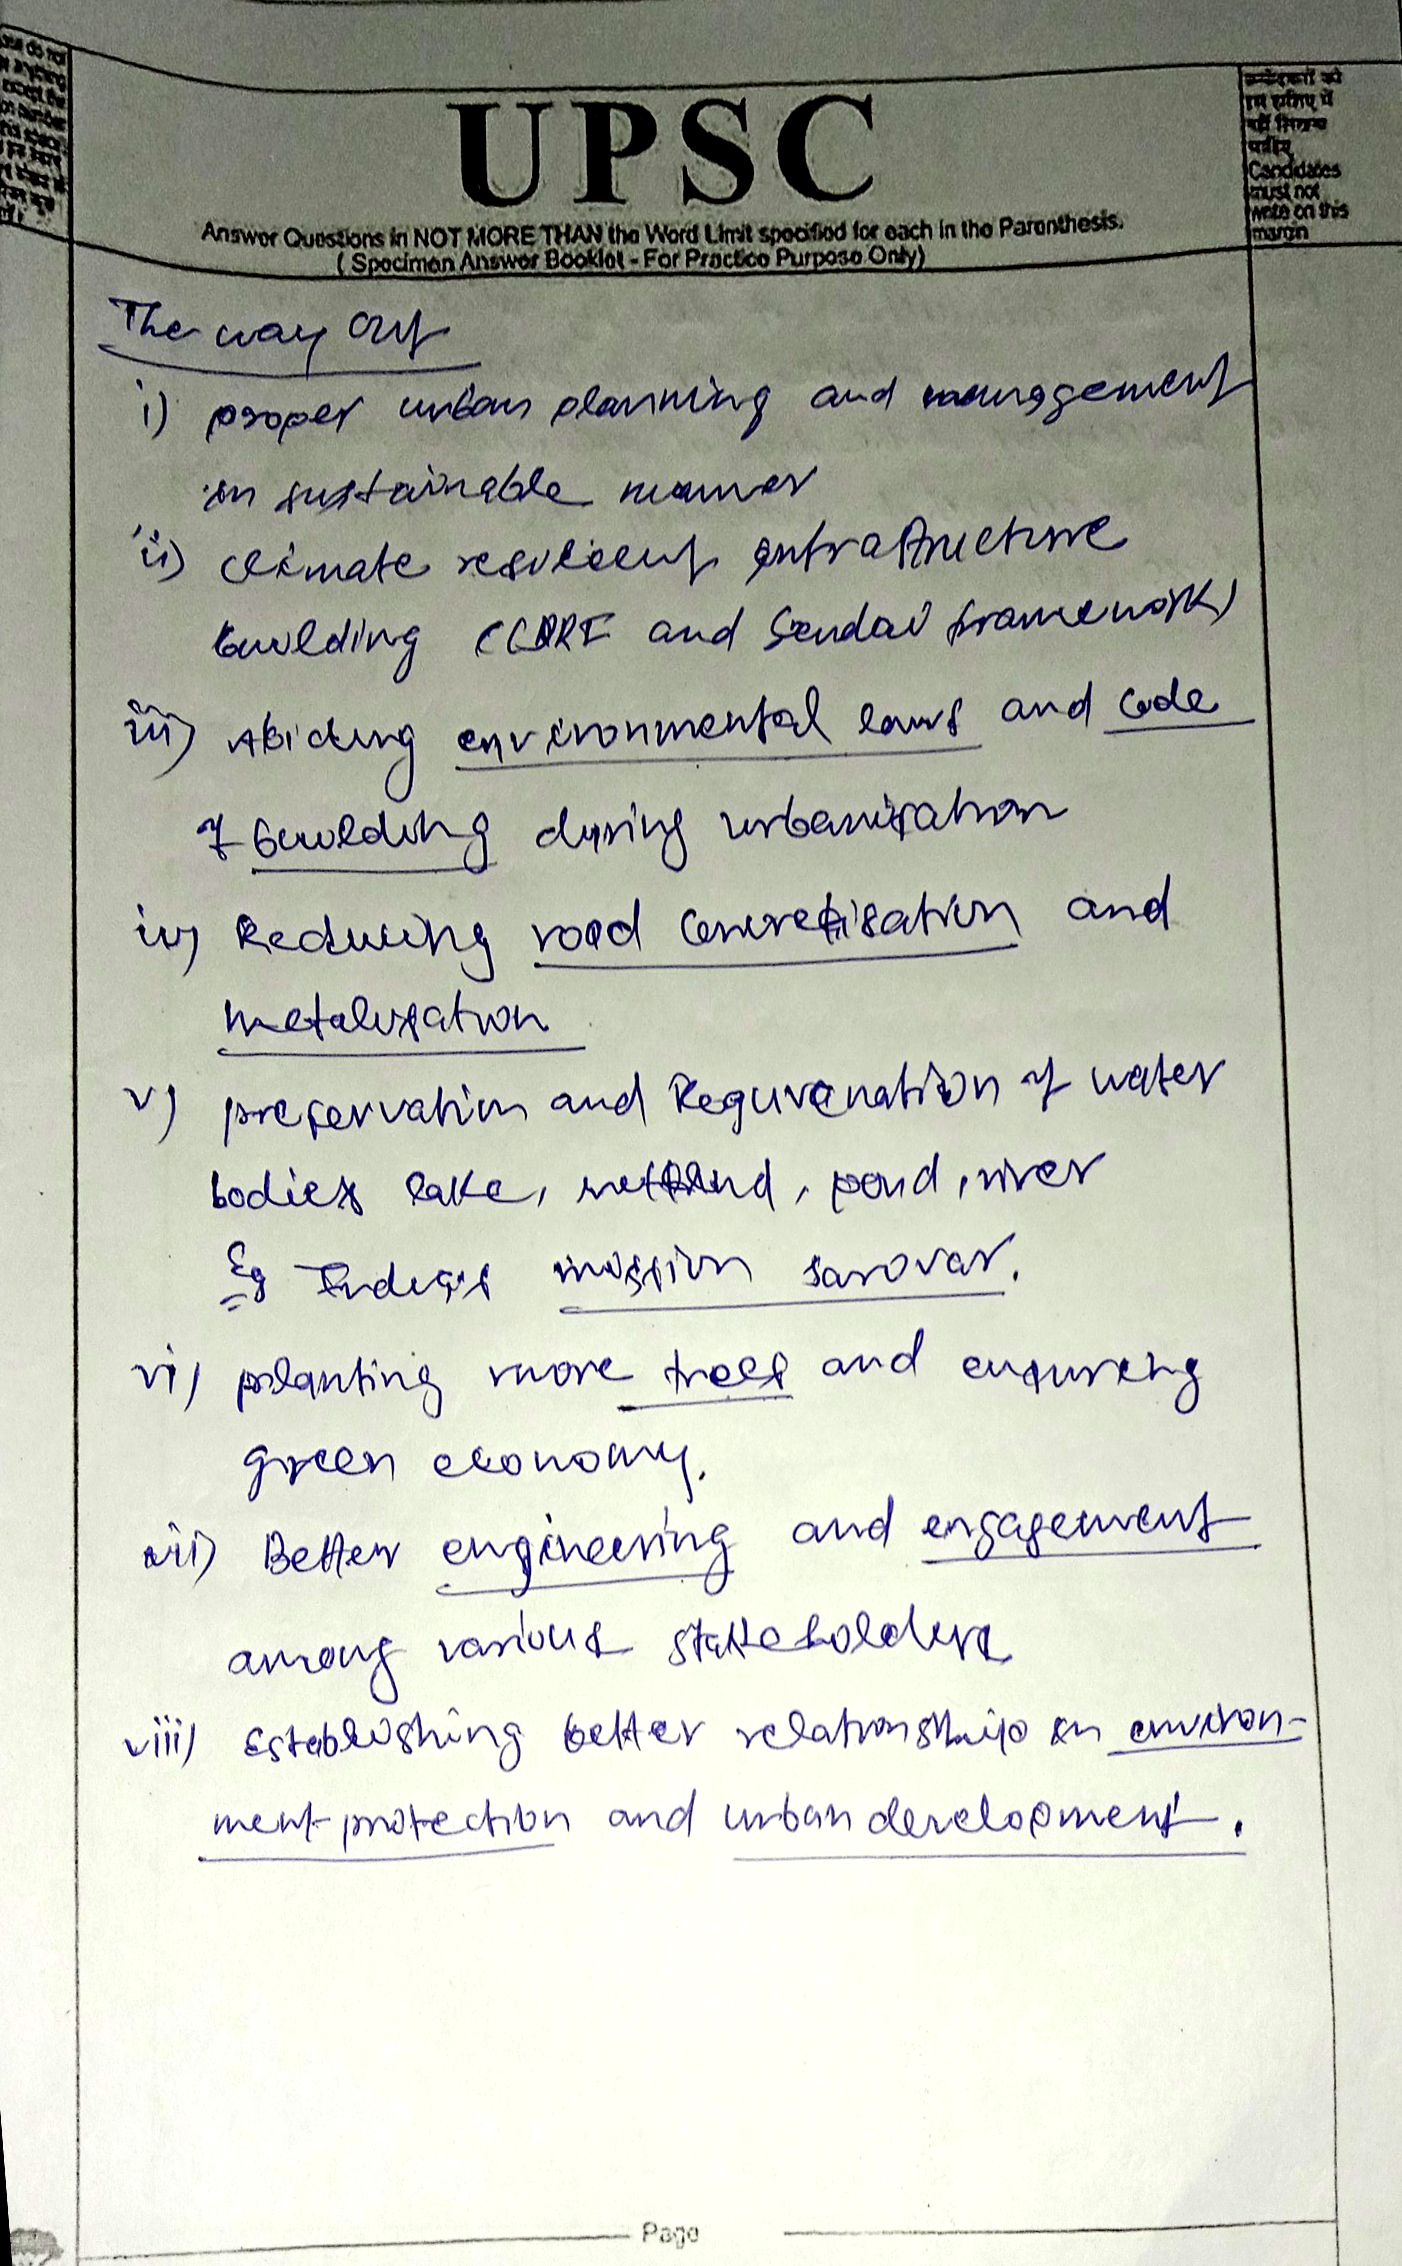 UPSC
Answer Questions in NOT MORE THAN the Word Limit specified for each in the Parenthesis.
( Specimen Answer Booklet - For Practice Purpose Only)
उम्मीदवारों को
इस हाशिए में
नहीं लिखना
चाहिए
Candidates
must not
write on this
margin
The way out
i) proper urban planning and management
in sustainable manner
ii) climate resilient infrastructure
building (CDRI and Sendai framework)
iii) Abiding environmental laws and code
of building during urbanisation
iv) Reducing road concretisation and
metalisation
v) preservation and Rejuvenation of water
bodies lake, wetland, pond, river
Eg India's mission sarovar.
vi) planting more trees and ensuring
green economy.
vii) Better engineering and engagement
among various stakeholders
viii) Establishing better relationship in environ-
ment protection and urban development.
Page